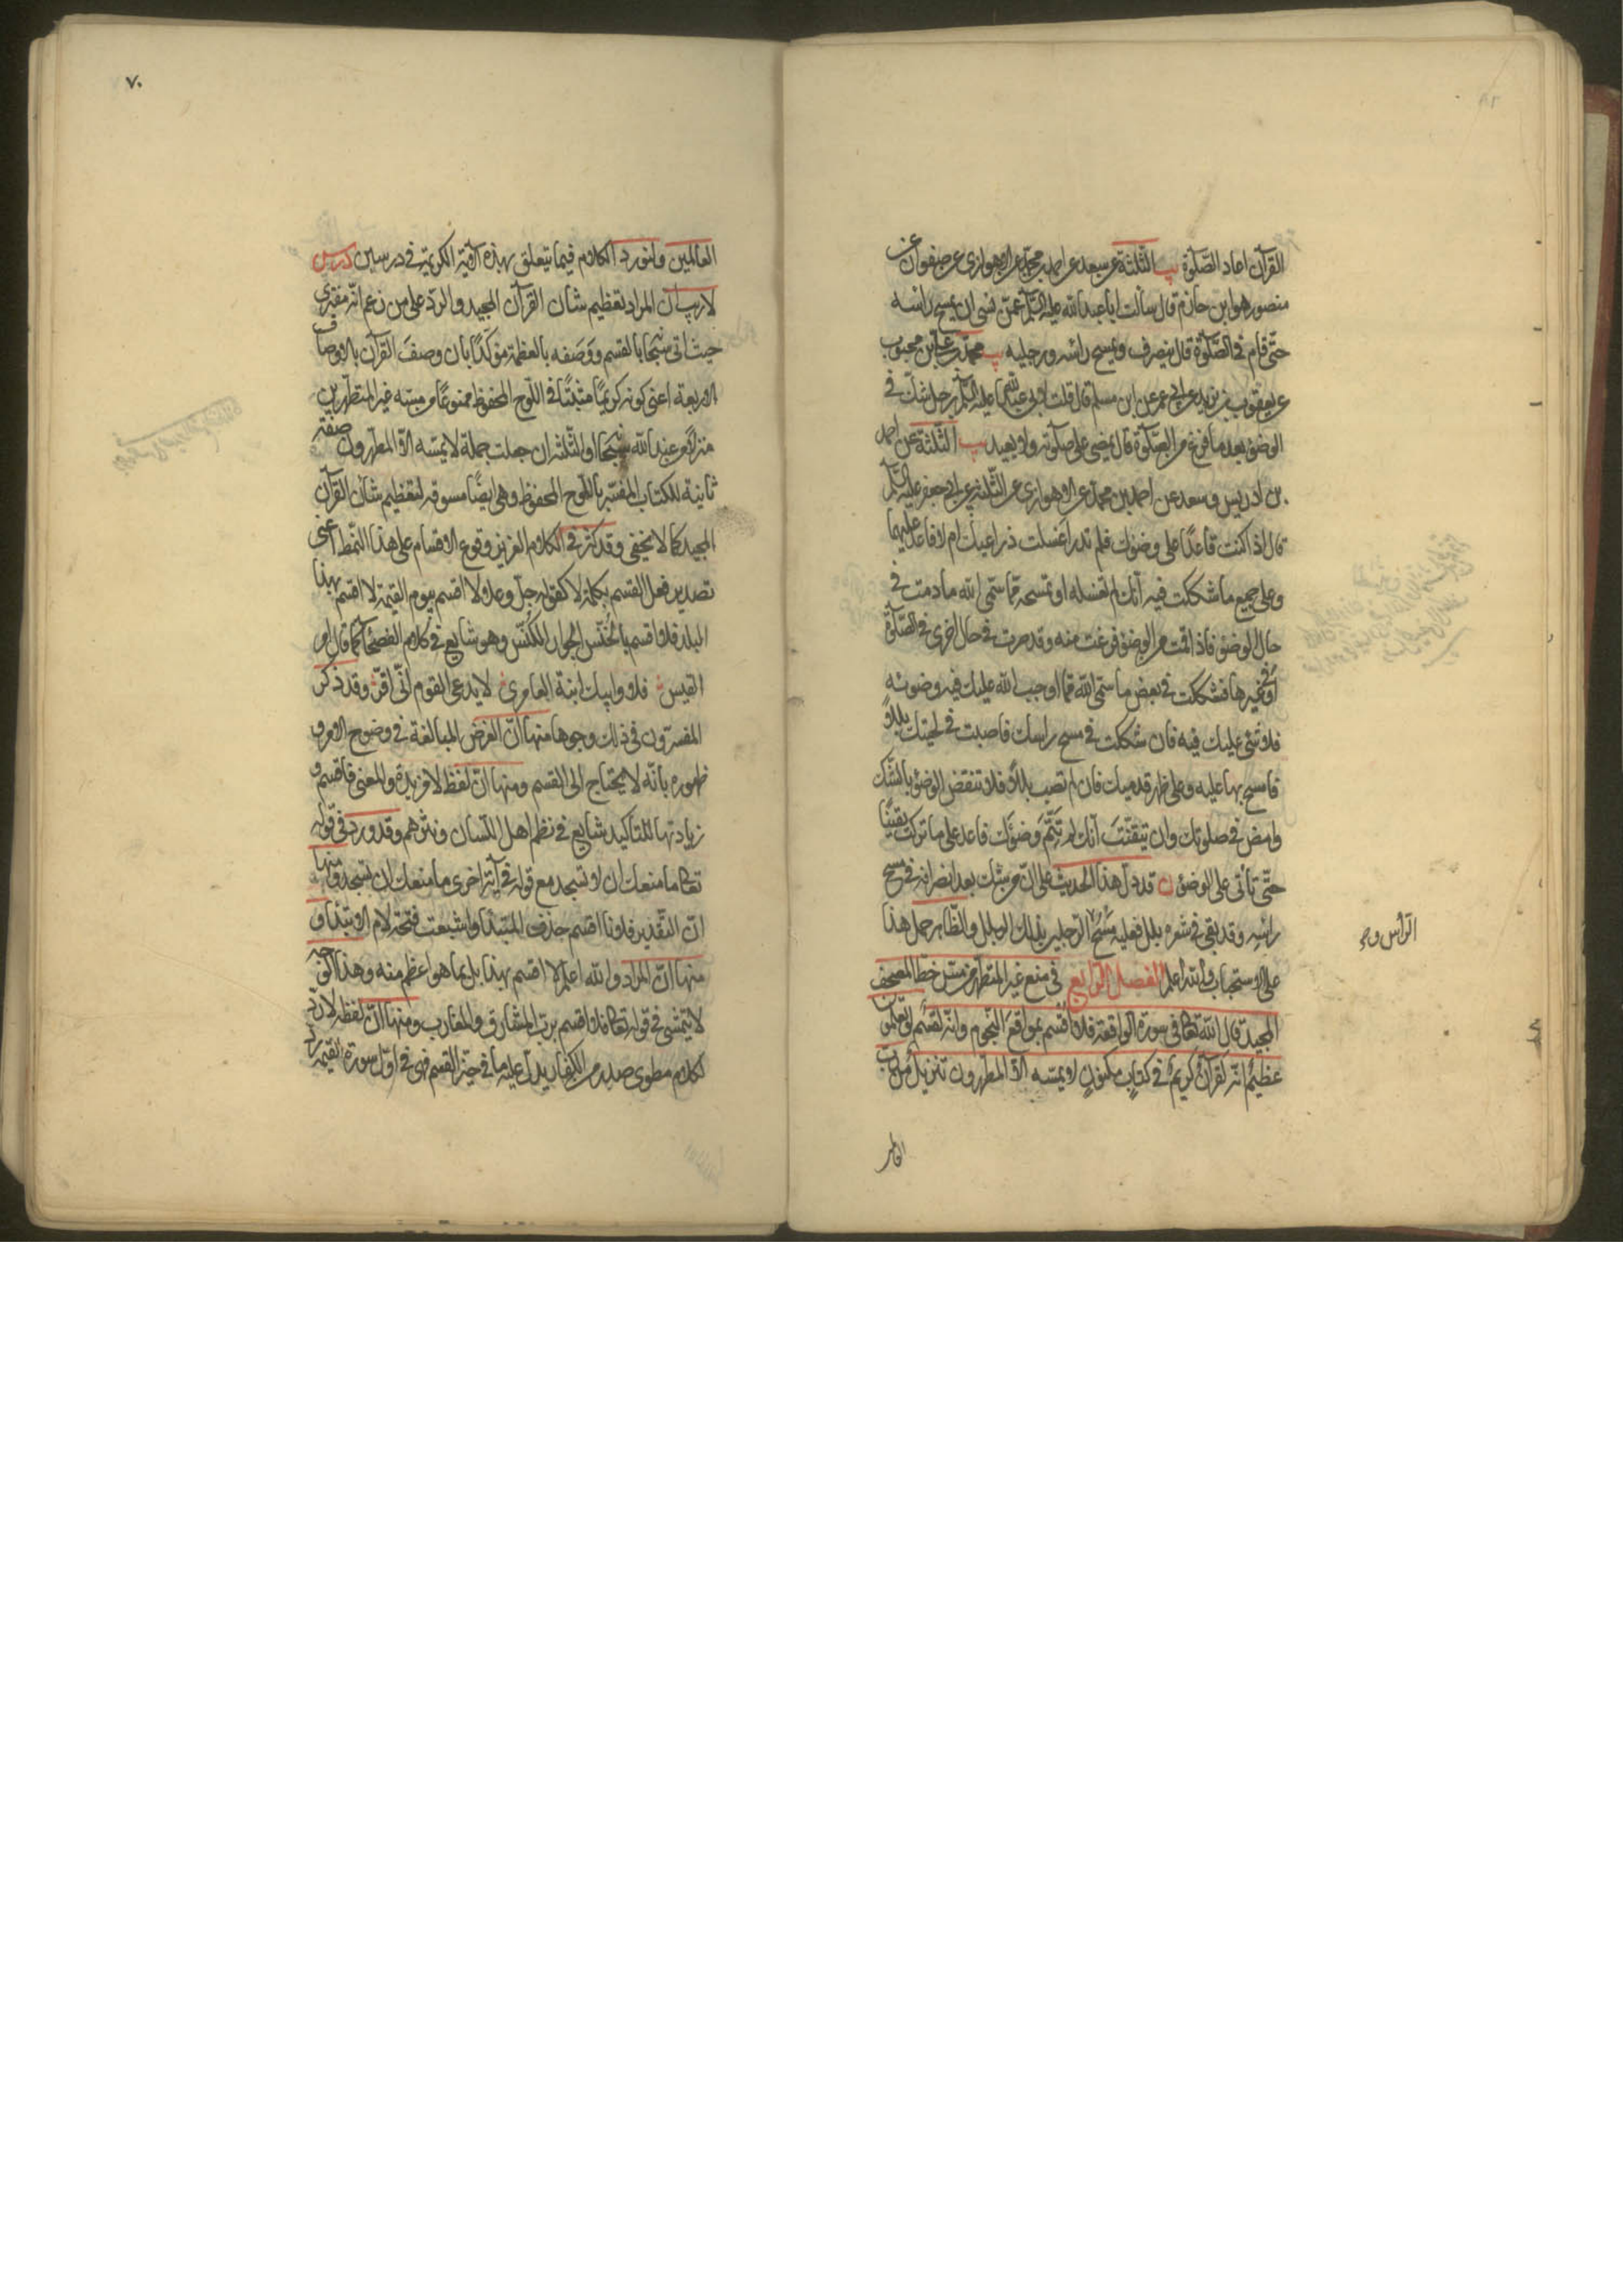 القرآن اعاد الصّلوة يب الثّلثة عن سعد عن احمد بن محمد عن الاهوازى عن صفوان عن
منصور هو ابن حازم قال سألت ابا عبد الله عليه السّلم عمّن نسى ان يمسح راسه
حتّى قام فى الصّلوة قال ينصرف ويمسح راسه ورجليه يب محمد بن على بن محبوب
عن يعقوب بن يزيد عن ابن ابى عمير عن ابن مسلم قال قلت لابى عبد الله عليه السّلم رجل شكّ فى
الوضوء بعد ما فرغ من الصّلوة قال يمضى على صلوته ولا يعيد يب الثّلثة عن احمد
بن ادريس وسعد عن احمد بن محمد عن الاهوازى عن الثّلثة عن ابى جعفر عليه السّلم
قال اذا كنت قاعدًا على وضوئك فلم تدر اغسلت ذراعيك ام لا فاعد عليهما
وعلى جميع ما شككت فيه انّك لم تغسله او تمسحه ممّا سمّى الله ما دمت فى
حال الوضوء فاذا قمت من الوضوء وفرغت منه وقد صرت فى حال اخرى فى الصّلوة
او فى غيرها فشككت فى بعض ما سمّى الله ممّا اوجب الله عليك فيه وضوئه
فلا شئ عليك فيه فان شككت فى مسح راسك فاصبت فى لحيتك بللاً
فامسح بها عليه وعلى ظهر قدميك فان لم تصب بللاً فلا تنقض الوضوء بالشّك
وامض فى صلوتك وان تيقّنت انّك لم تتمّ وضوئك فاعد على ما تركت يقينًا
حتّى تأتى على الوضوء ن قد دلّ هذا الحديث على انّ من شك بعد انصرافه فى مسح
راسه وقد بقى فى شعره بلل فعليه مسح الرّجلين بذلك البلل والظّاهر حمل هذا
على الاستحباب والله اعلم الفصل الرّابع فى منع غير المتطهّر من مسّ خطّ المصحف
المجيد قال الله تعالى فى سورة الواقعة فلا اقسم بمواقع النّجوم وانّه لقسم لو تعلمون
عظيم انّه لقرآن كريم فى كتاب مكنون لا يمسّه الّا المطهّرون تنزيل من ربّ
الراس و
٧٠
العالمين ولنورد الكلام فيما يتعلق بهذه الآية الكريمة فى درسين درس
لا ريب ان المراد تعظيم شان القرآن المجيد والرّد على من زعم انّه مفترى
حيث اتى سبحانه بالقسم ووصفه بالعظمة مؤكّدًا بان وصف القرآن بالاوصاف
الاربعة اعنى كونه كريمًا مثبتًا فى اللّوح المحفوظ ممنوعًا من مسّه غير المتطهّرين
منزلًا من عند الله سبحانه او الثّلثة ان جعلت جملة لا يمسّه الّا المطهّرون صفة
ثانية للكتاب المفسّر باللّوح المحفوظ وهى ايضًا مسوقة لتعظيم شان القرآن
المجيد كما لا يخفى وقد كثر فى الكلام العزيز وقوع الاقسام على هذا النّمط اعنى
تصدير فعل القسم بكلمة لا كقوله جلّ وعلا لا اقسم بيوم القيمة لا اقسم بهذا
البلد فلا اقسم بالخنّس الجوار الكنّس وهو شايع فى كلام الفصحاء كما قال امرء
القيس فلا وابيك ابنة العامرى لا يدعى القوم انّى افرّ وقد ذكر
المفسّرون فى ذلك وجوها منها انّ الغرض المبالغة فى وضوح الامر و
ظهوره بانّه لا يحتاج الى القسم ومنها انّ لفظ لا مزيدة والمعنى فاقسم و
زيادتها للتاكيد شايع فى نظم اهل اللّسان ونثرهم وقد ورد فى قوله
تعالى ما منعك ان لا تسجد مع قوله فى آية اخرى ما منعك ان تسجد ومنها
انّ التّقدير فلانا اقسم حذف المبتدأ واشبعت فتحة لام الابتداء و
منها انّ المراد والله اعلم لا اقسم بهذا بل بما هو اعظم منه وهذا الوجه
لا يتمشّى فى قوله تعالى فلا اقسم بربّ المشارق والمغارب ومنها انّ لفظه لا ردّ
لكلام مطوى صدر من الكفّار يدلّ عليه ما فى حيّز القسم فهى فى اوّل سورة القيمة ردّ